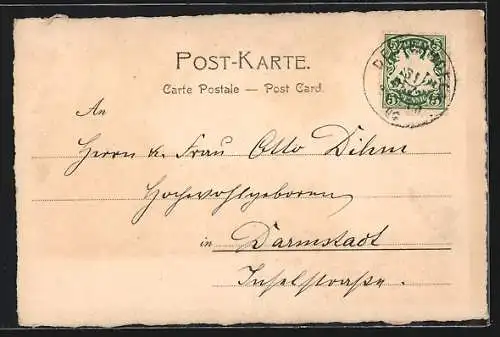 POST-KARTE.
Carte Postale — Post Card.
An
Herrn & Frau Otto Dihm
Hochwohlgeboren
in Darmstadt
Inselstraße.